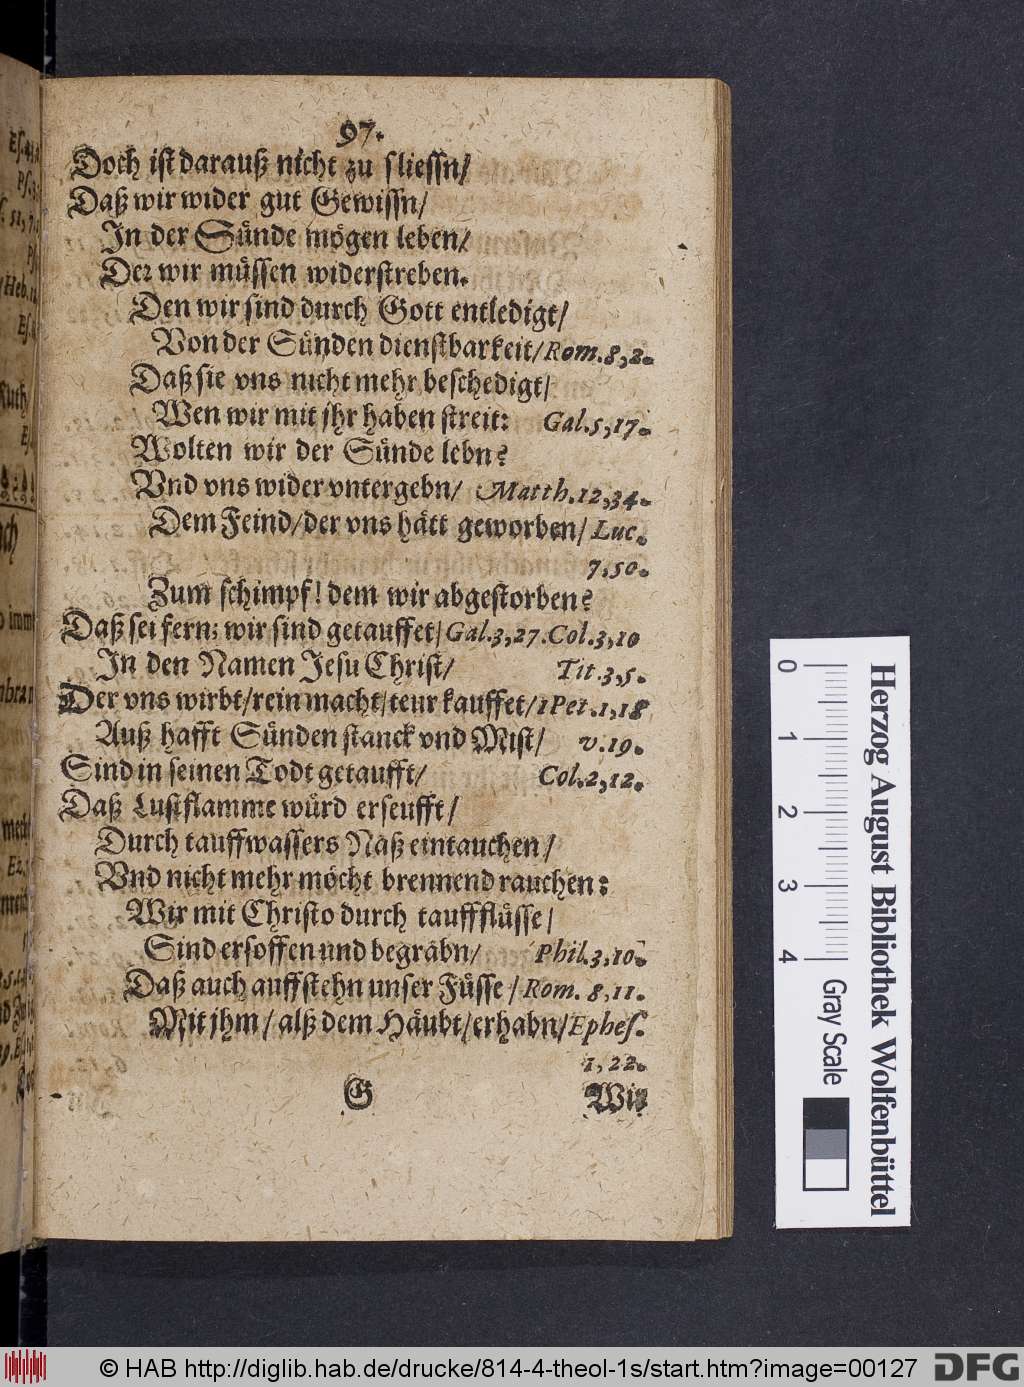 97.
Doch ist darauß nicht zu sliessn/
Daß wir wider gut Gewissn/
In der Sünde mögen leben/
Der wir müssen widerstreben.
Den wir sind durch Gott entledigt/
Von der Sünden dienstbarkeit/ Rom. 8, 2.
Daß sie vns nicht mehr beschedigt/
Wen wir mit jhr haben streit: Gal. 5, 17.
Wolten wir der Sünde lebn?
Vnd vns wider vntergebn/ Matth. 12, 34.
Dem Feind/ der vns hätt geworben/ Luc.
7, 50.
Zum schimpf! dem wir abgestorben?
Daß sei fern; wir sind getauffet/ Gal. 3, 27. Col. 3, 10
In den Namen Jesu Christ/ Tit. 3, 5.
Der vns wirbt/ rein macht/ teur kauffet/ 1 Pet. 1, 18
Auß hafft Sünden stanck vnd Mist/ v. 19.
Sind in seinen Todt getaufft/ Col. 2, 12.
Daß Lustflamme würd erseufft/
Durch tauffwassers Naß eintauchen/
Vnd nicht mehr möcht brennend rauchen:
Wir mit Christo durch tauffflüsse/
Sind ersoffen und begräbn/ Phil. 3, 10.
Daß auch auffstehn unser Füsse/ Rom. 8, 11.
Mit jhm/ alß dem Häubt/ erhabn/ Ephes.
1, 22.
G Wir
0 1 2 3 4 Gray Scale
Herzog August Bibliothek Wolfenbüttel
© HAB http://diglib.hab.de/drucke/814-4-theol-1s/start.htm?image=00127 DFG